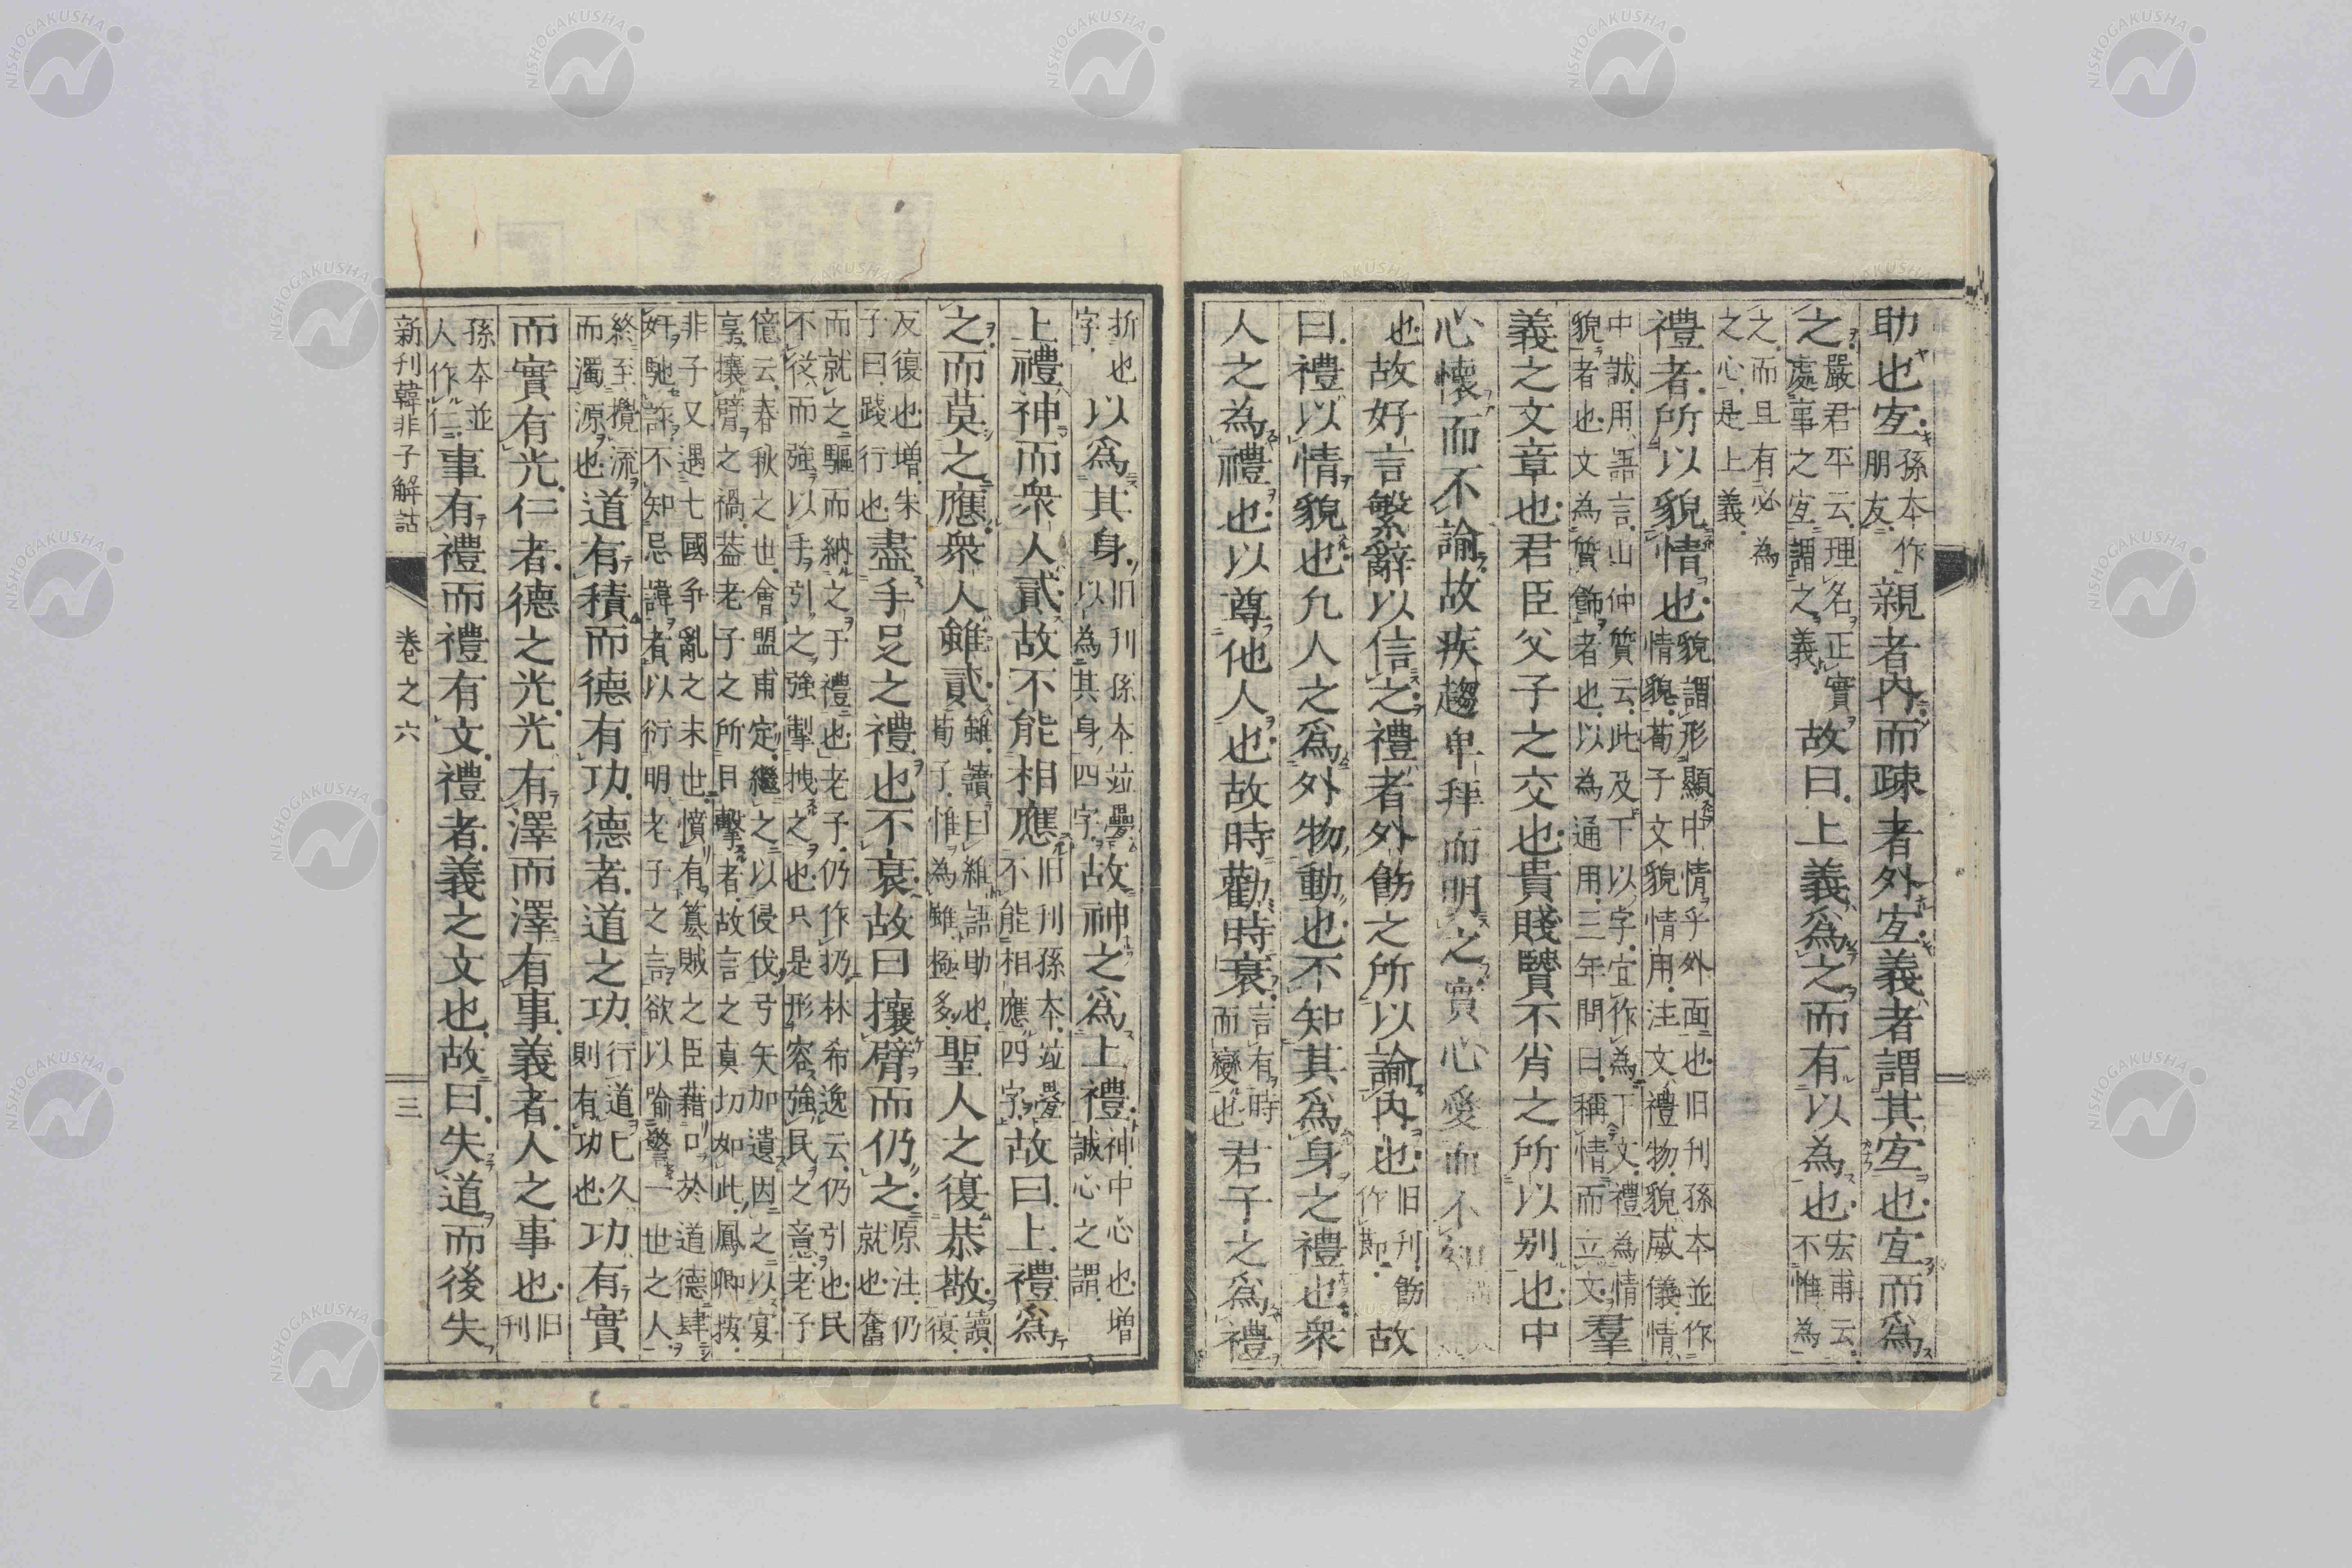 助也宜孫本作朋友親者内而疎者外宜義者謂其宜也宜而爲
之嚴君平云理名正實處事之宜謂之義故曰上義爲之而有以為也宏甫云不惟為
之而且有必為之心是上義
禮者所以貌情也貌謂形顯中情乎外面也旧刊孫本並作情貌荀子文貌情用注文禮物貌威儀情
中誠用語言山仲質云此及下以字宜作為下文禮為情貌者也文為質飾者也以為通用三年問曰稱情而立文羣
義之文章也君臣父子之交也貴賤賢不肖之所以别也中
心懷而不諭故疾趨卑拜而明之實心愛而不知
也故好言繁辭以信之禮者外飾之所以諭内也旧刊飾作節故
曰禮以情貌也凡人之爲外物動也不知其爲身之禮也衆
人之為禮也以尊他人也故時勸時衰言有時而變也君子之爲禮
折也字以爲其身旧刊孫本並疊以為其身四字故神之爲上禮神中心也增誠心之謂
上禮神而衆人貳故不能相應旧刊孫本並疊不能相應四字故曰上禮爲
之而莫之應衆人雖貳雖讀曰維語助也荀子惟為雖極多聖人之復恭敬讀復
反復也増朱子曰踐行也盡手足之禮也不衰故曰攘臂而仍之原注仍就也奮
而就之驅而納之于禮也老子仍作扔林希逸云仍引也民不從而強以手引之強掣拽之也只是形容強民之意老子
億云春秋之世會盟甫定繼之以侵伐弓矢加遺因之以宴享攘臂之禍葢老子之所目擊者故言之真切如此鳳卿按
非子又遇七國爭亂之末世憤有簒賊之臣藉口於道德肆奸馳詐不知忌諱者以衍明老子之言欲以喻警一世之人
終至攪流而濁源也道有積而德有功德者道之功行道已久則有功也功有實
而實有光仁者德之光光有澤而澤有事義者人之事也旧刊
孫本並人作仁事有禮而禮有文禮者義之文也故曰失道而後失
新刊韓非子解詁 卷之六 三